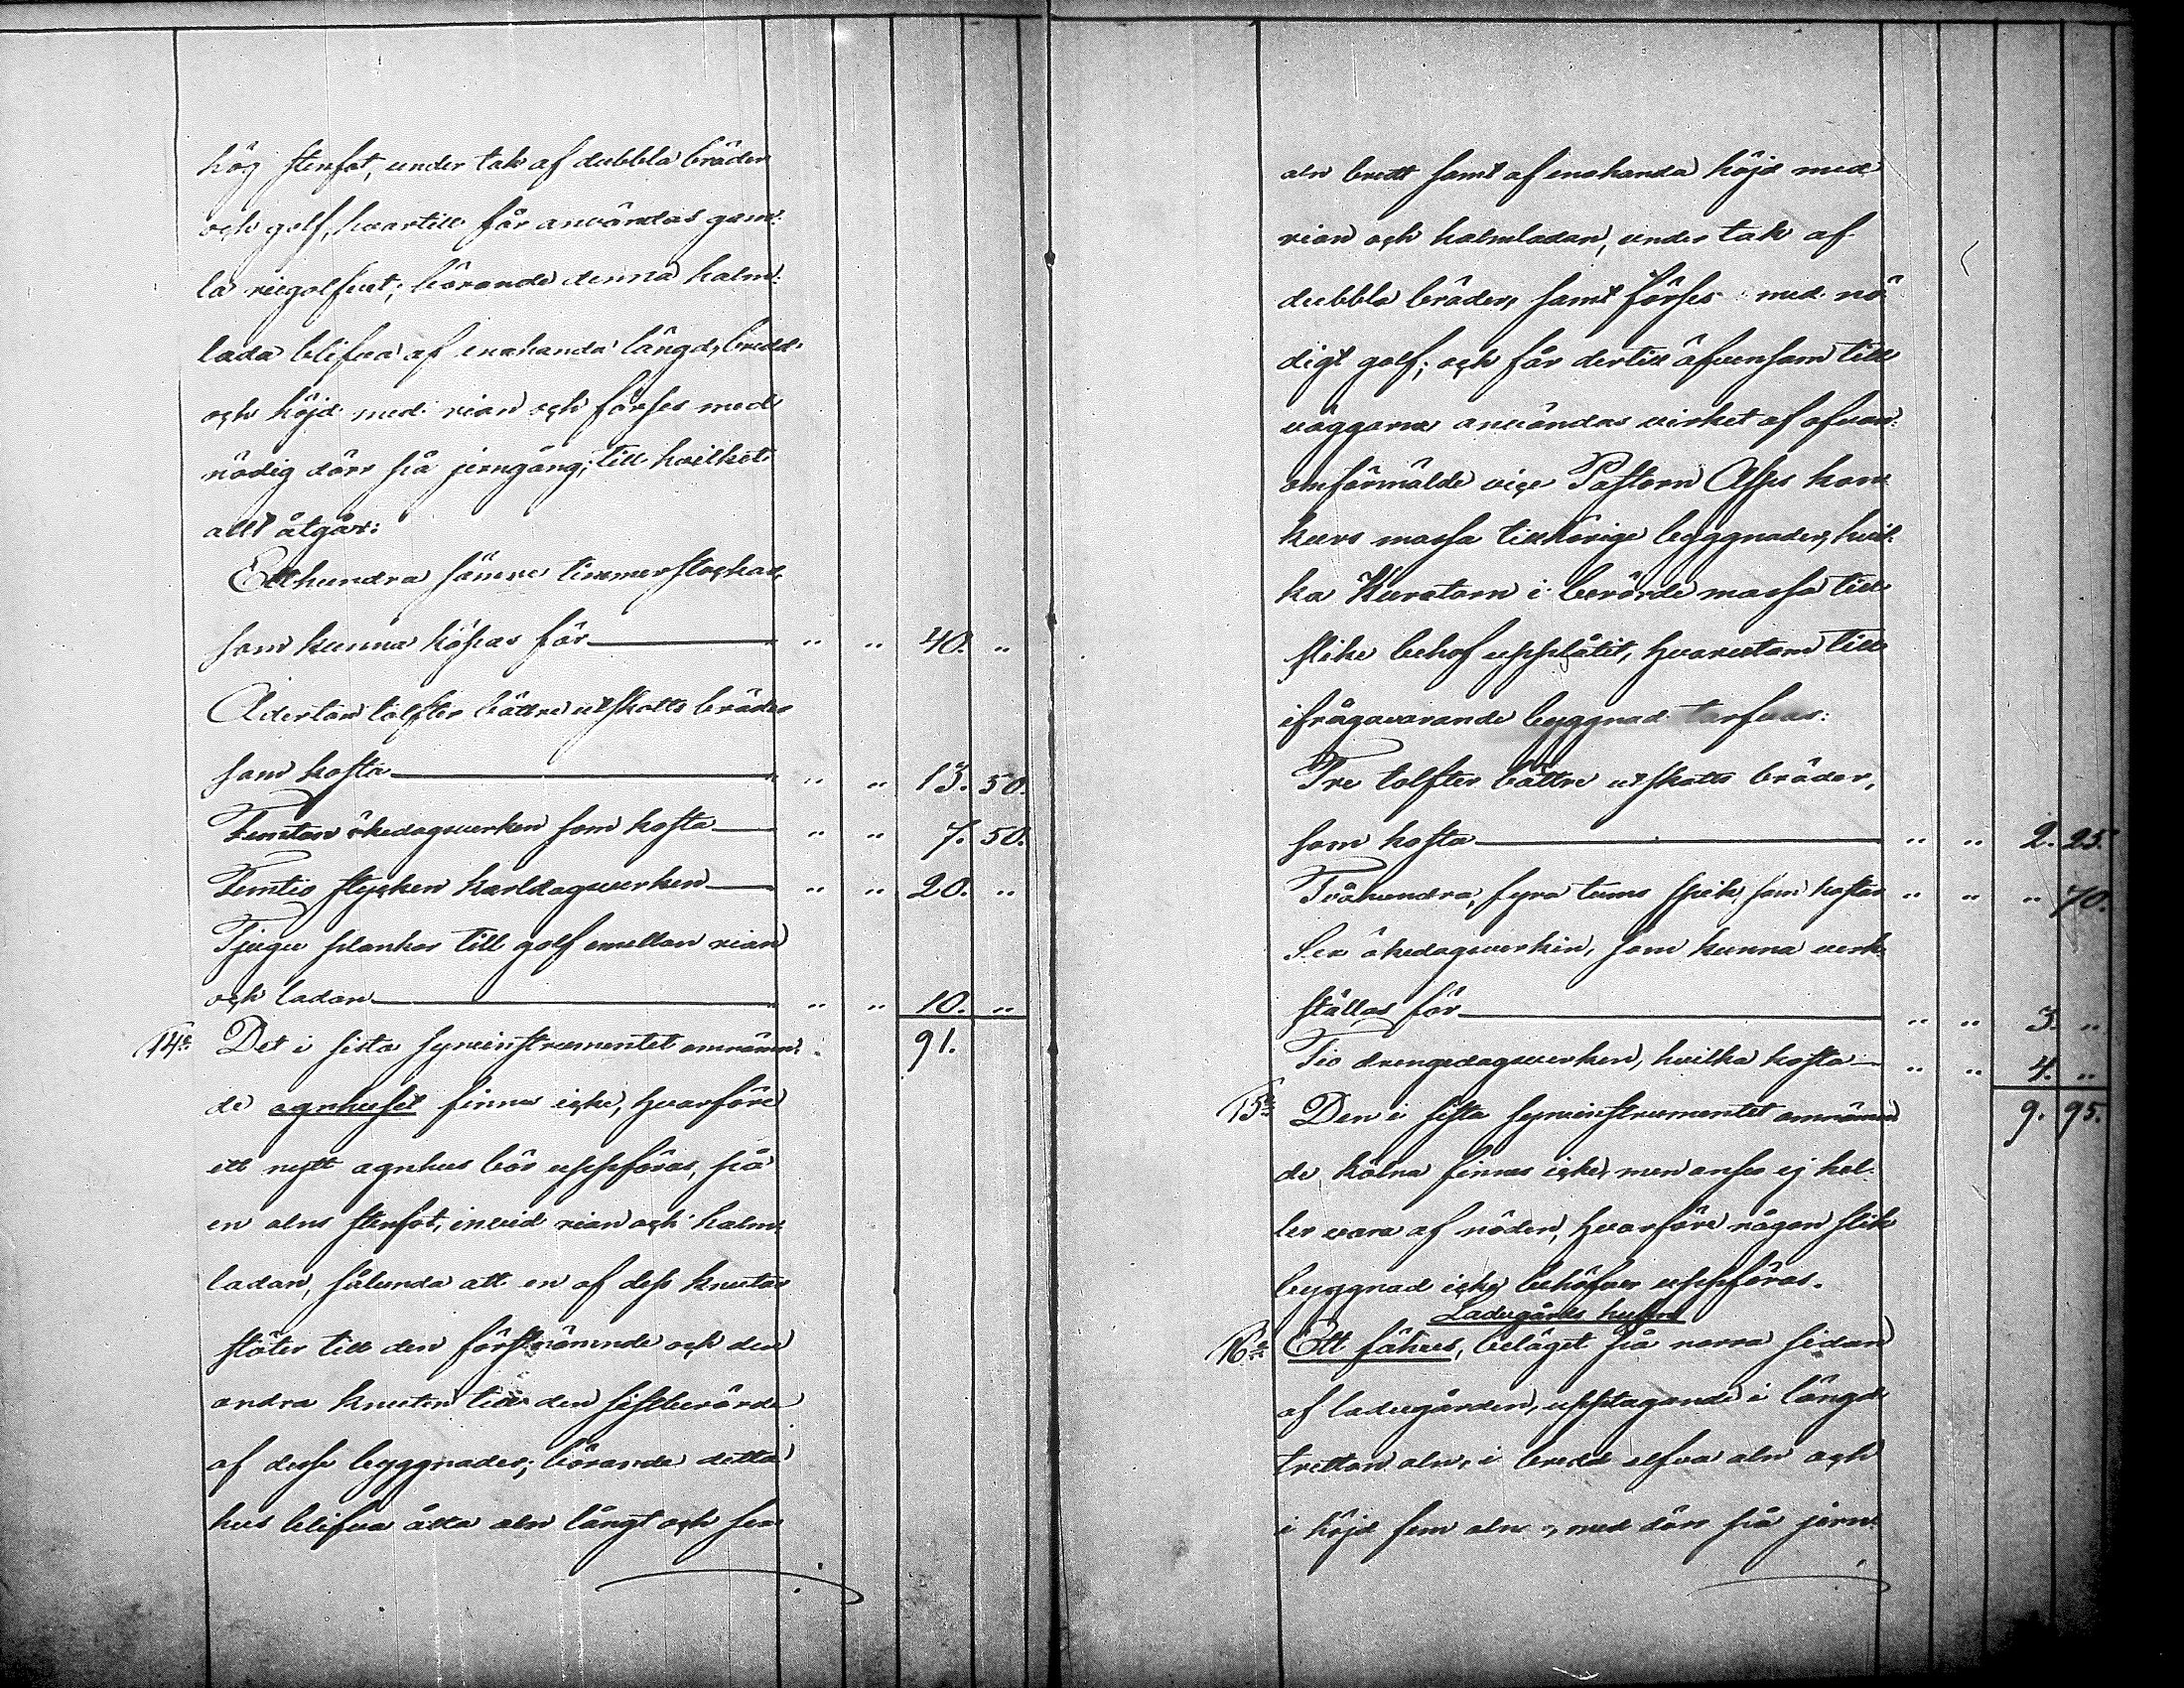 hög stenfot, under tak af dubbla bräder
och golf, hvartill får användas gam-
la riegolfvet; börande denna halm-
lada blifva af enahanda längd, bredd
och höjd med rian och förses med
nödig dörr på jerngång; till hvilket
allt åtgår:
Etthundra sämre timmerstockar,
som kunna köpas för " " 40. "
Aderton tolfter bättre utskotts bräder
som kosta " " 13. 50.
Femton ökedagsverken som kosta " " 7. 50.
Femtio stycken karldagsverken " " 20. "
Tjugu plankor till golf emellan rian
och ladan " " 10. "
14e Det i sista syneinstrumentet omnämn- 91.
de agnhuset finnes icke, hvarföre
ett nytt agnhus bör uppföras, på
en alns stenfot, invid rian och halm-
ladan, sålunda att en af dess knutar
stöter till den förstnämnde och den
andra knuten till den sistberörde
af desse byggnader; börande detta
hus blifva åtta aln långt och sex
aln bredt samt af enahanda höjd med
rian och halmladan, under tak af
dubbla bräder, samt förses med nö
digt golf; och får dertill äfvensom till
väggarne användas virket af ofvan-
omförmälde vice Pastorn Asps kon
kurs massa tillhörige byggnader, hvil-
ka Kuratorn i berörde massa till
slike behof upplåtit, hvarutom till
ifrågavarande byggnad tarfvas:
Tre tolfter bättre utskotts bräder,
som kosta " " 2. 25.
Tvåhundra, fyra tums spik, som kostar " " " 70.
Sex ökedagsverken, som kunna verk-
ställas för " " 3. "
Tio drengedagsverken, hvilka kosta " " 4. "
15e Den i sista syneinstrumentet omnämn 9. 95.
de kölna finnes icke, men anses ej hel-
ler vara af nöden, hvarföre någon slik
byggnad icke behöfver uppföras.
Ladugårds husen
16e Ett fähus, beläget på norra sidan
af ladugården, upptagande i längd
tretton aln, i bredd elfva aln och
i höjd fem aln, med dörr på jern-